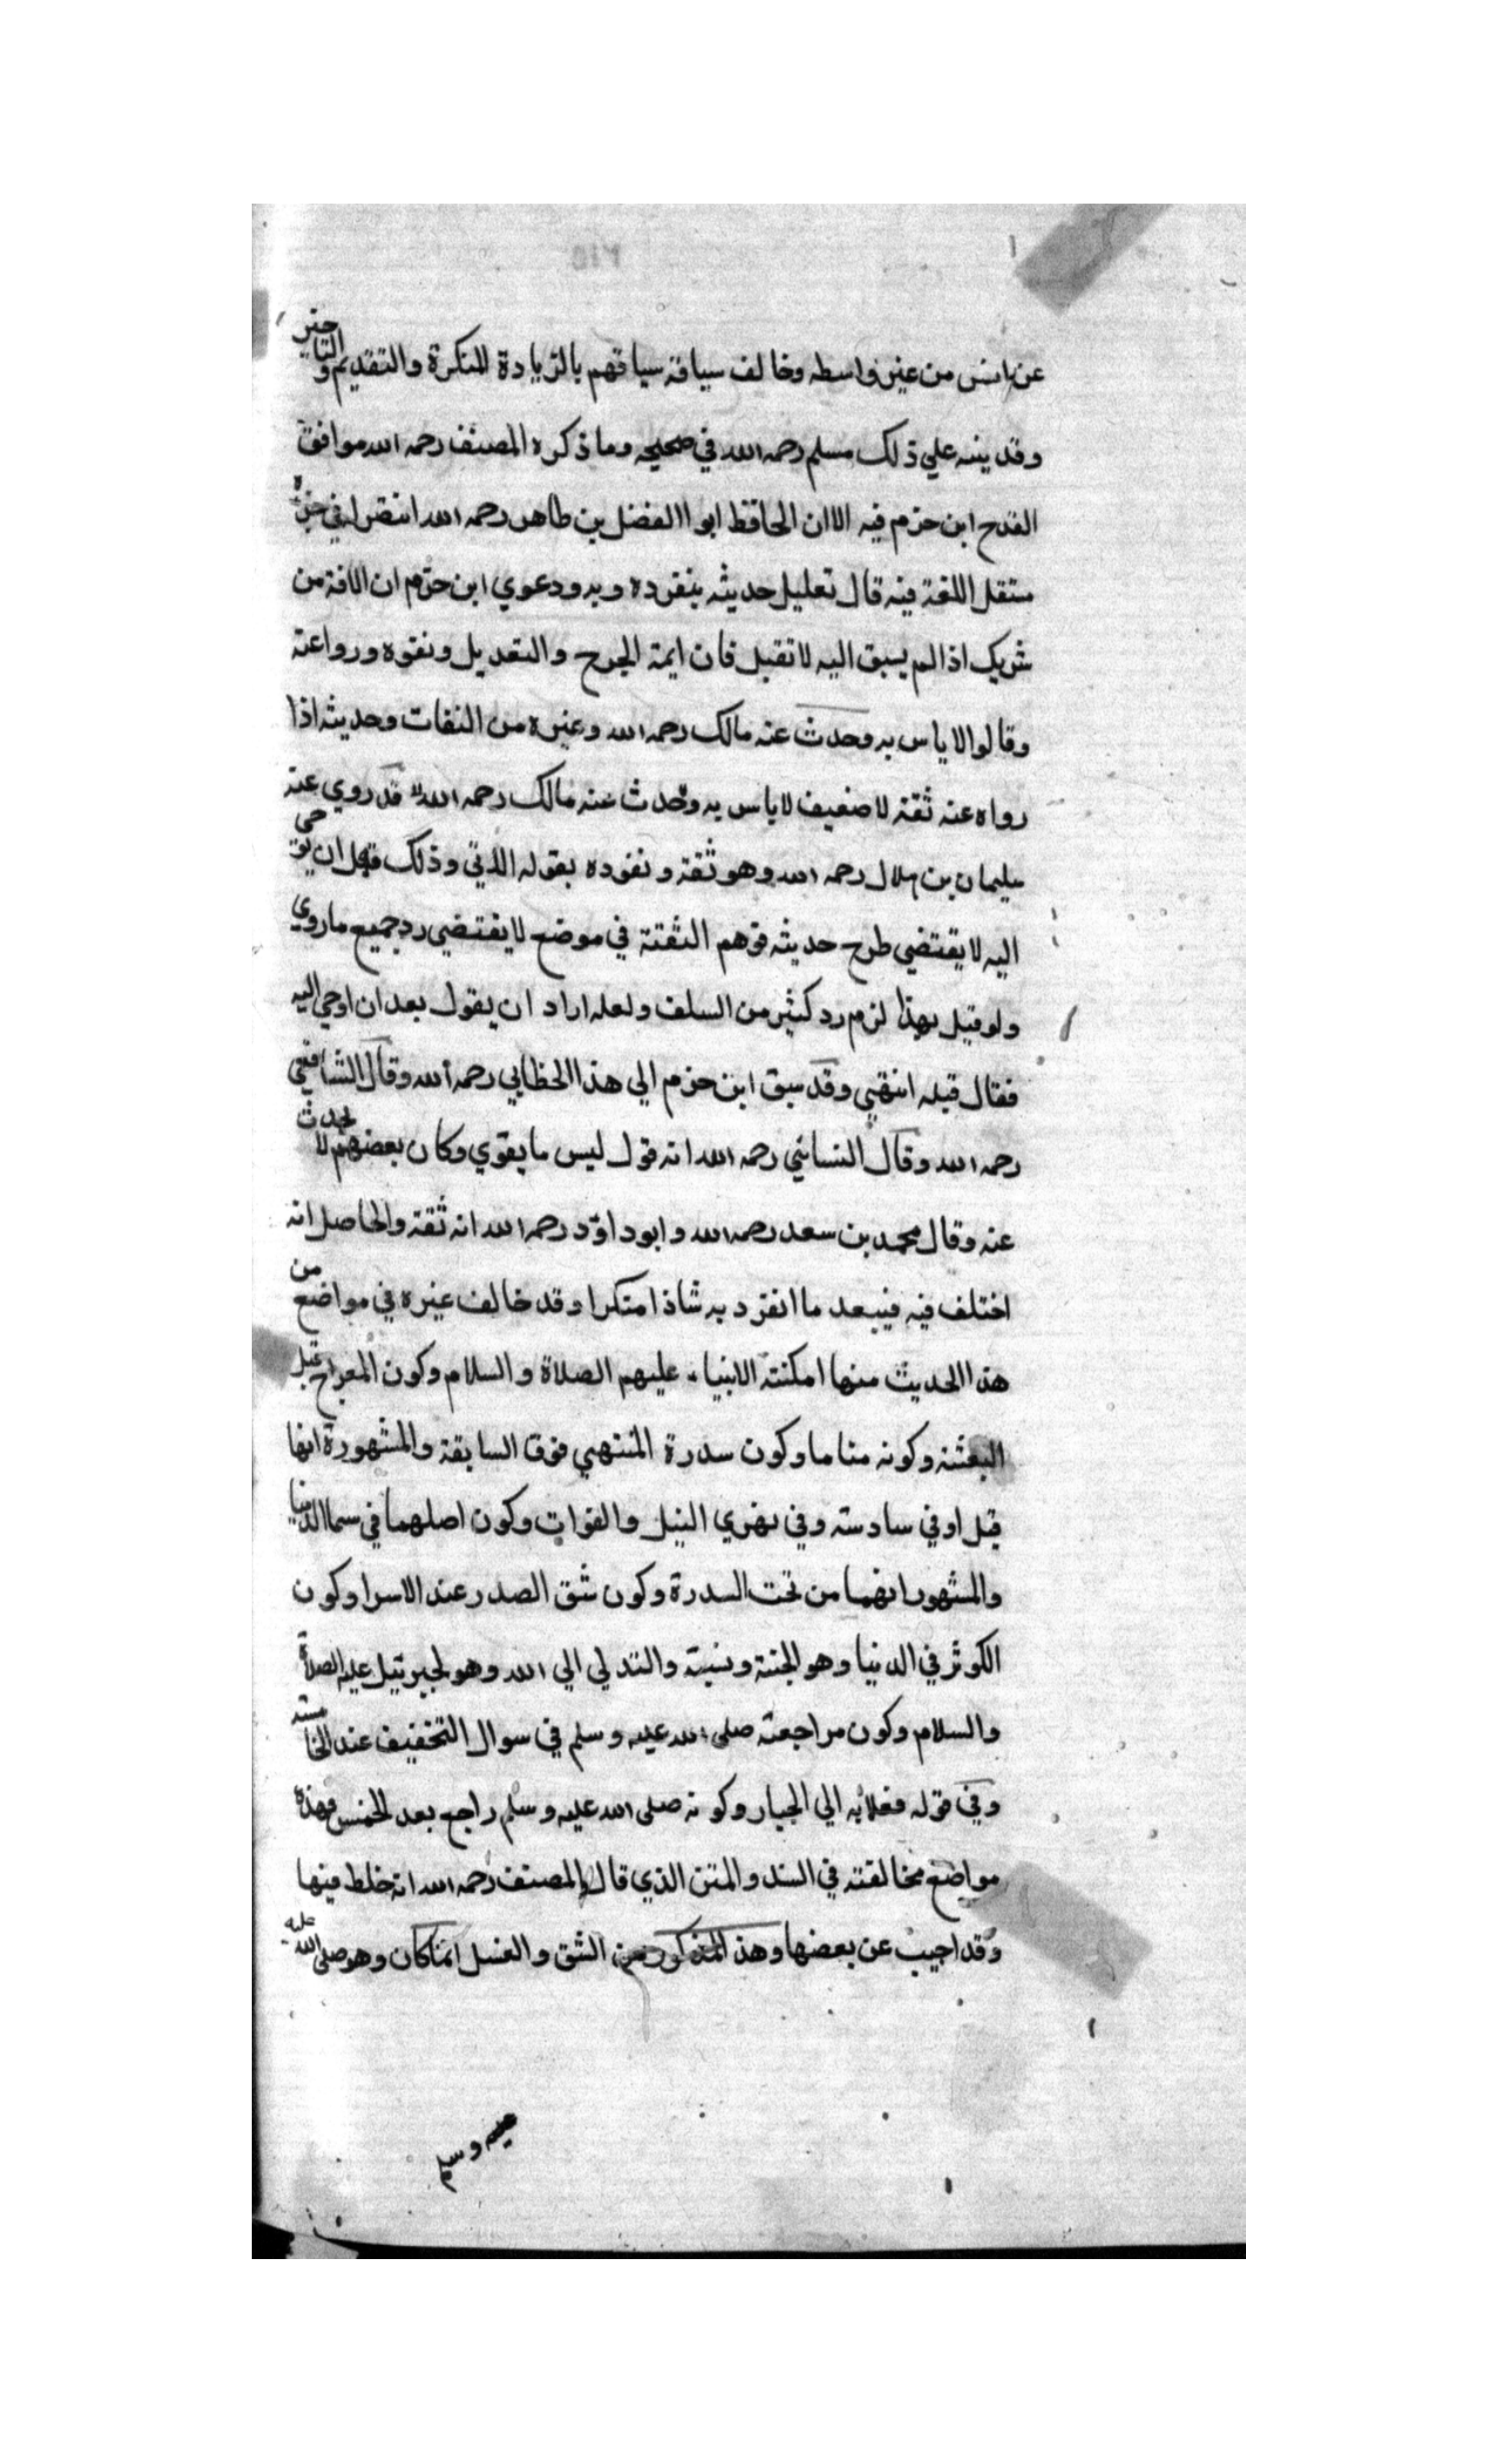 عن انس من غير واسطه وخالف سياقه سياقهم بالزيادة المنكرة والتقديم والتاخير
وقد ينبه علي ذلك مسلم رحمه الله في صحيحه وما ذكره المصنف رحمه الله موافق
القدح ابن حزم فيه الا ان الحافظ ابو االفضل بن طاهر رحمه الله انتصر في جزء
مستقل فيه قال تعليل حديثه بتفرده وبه ودعوي ابن حزم ان الافة من
شريك اذا لم يسبق اليه لا تقبل فان ايمة الجرح والتعديل ونقوه ورواعنه
وقالوا لا باس به وحدث عنه مالك رحمه الله وغيره من الثقات وحديثه اذا
رواه عنه ثقة لا ضعيف لا باس به وحدث عنه مالك رحمه الله قد روي عنه
سليمان بن بلال رحمه الله وهو ثقة وتفرده بقوله وذلك قبل ان يوحى
اليه لا يقتضي طرح حديثه فوهم الثقة في موضع لا يقتضي رد جميع ماروي
ولو قيل بهذا لزم رد كثير من السلف ولعله اراد ان يقول بعد ان اوحي اليه
فقال قبله انتهي وقد سبق ابن حزم الي هذا الخطابي رحمه الله وقال الشافعي
رحمه الله وقال النسائي رحمه الله انه قول ليس ما يقوي وكان بعضهم لا يحدث
عنه وقال محمد بن سعد رحمه الله وابو داوٓد رحمه الله انه ثقة والحاصل انه
اختلف فيه فيبعد ما انفرد به شاذا منكرا وقد خالف غيره في مواضع من
هذا الحديث منها امكنة الانبياء عليهم الصلاة والسلام وكون المعراج قبل
البعثة وكونه مناما وكون سدرة المنتهي فوق السابقة والمشهورة انها
قبل اوفي سادسته وفي نهري النيل والفرات وكون اصلهما في سما الدنيا
والمشهور انهما من تحت السدرة وكون شق الصدر عند الاسرا وكون
الكوثر في الدنيا وهو الجنة ونسبة والتدلي الي الله وهو لجبرئيل عليه الصلاة
والسلام وكون مراجعته صلى الله عليه وسلم في سوال التخفيف عند الخامسه
وفي قوله فعلا به الي الجبار وكونه صلى الله عليه وسلم راجع بعد الخمس فهذه
مواضع مخالفته في السند والمتن الذي قال المصنف رحمه الله انه خلط فيها
وقد اجيب عن بعضها وهذا المذكور من الشق والغسل انما كان وهو صلى الله عليه
عليه وسلم